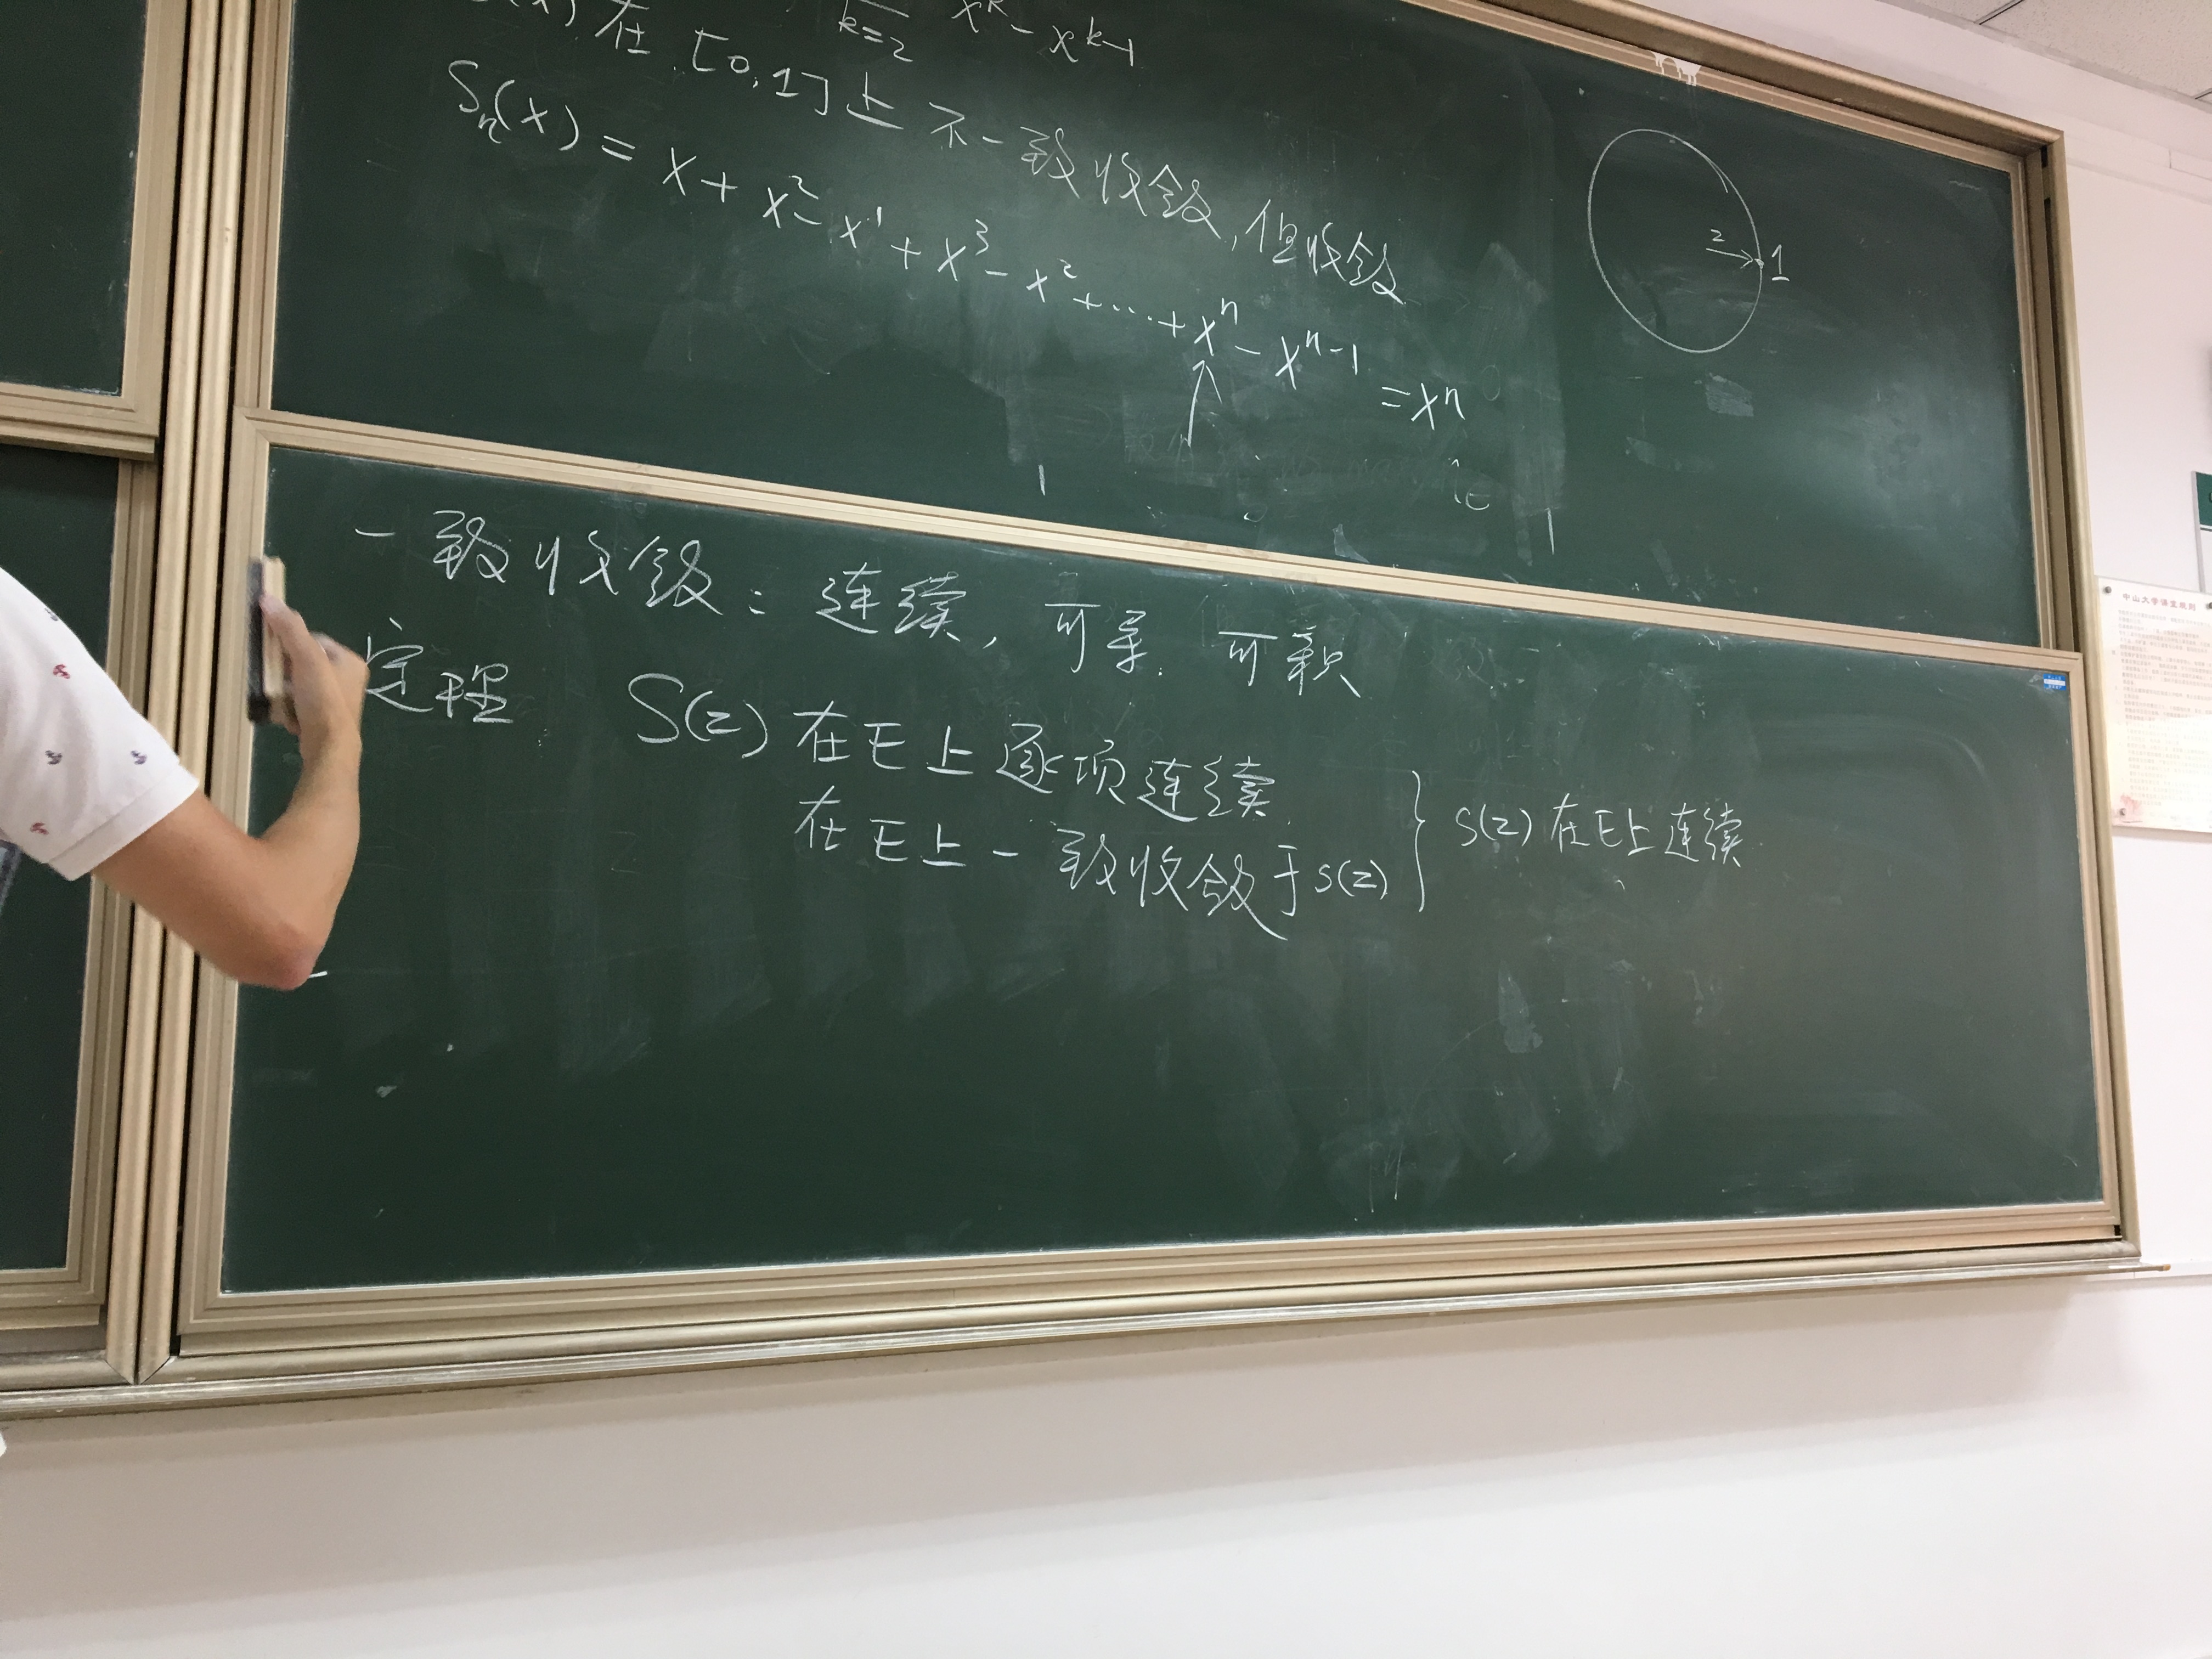 k=2 x^k - x^{k-1}
(x) 在 [0,1] 上 不一致收敛, 但收敛
S_n(x) = x + x^2 - x^1 + x^3 - x^2 + ... + x^n - x^{n-1} = x^n
z 1
一致收敛: 连续, 可导. 可积
定理 S(z) 在E上逐项连续
在E上一致收敛于s(z) } s(z) 在E上连续
中山大学课堂规则